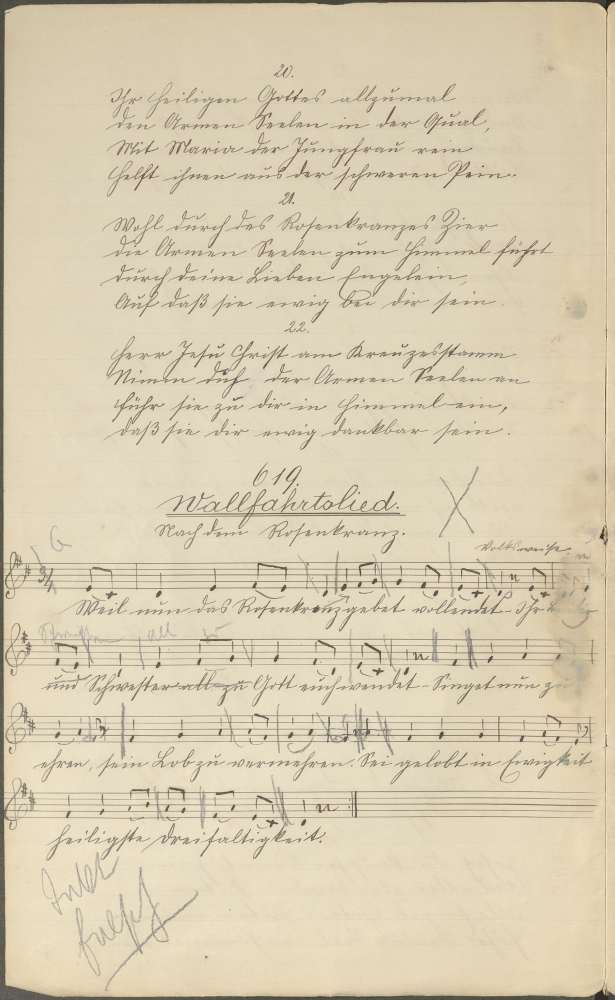 20.
Ihr heiligen Gottes allzumal
den Armen Seelen in der Qual,
Mit Maria der Jungfrau rein
helft ihnen aus der schweren Pein.
21.
Wohl durch des Rosenkranzes Zier
die Armen Seelen zum Himmel führt
durch deine Lieben Engelein,
Auf daß sie ewig bei dir sein.
22.
Herr Jesu Christ am Kreuzesstamm
Nimm duch der Armen Seelen an
führ sie zu dir in Himmel ein,
daß sie dir ewig dankbar sein.
619.
Wallfahrtslied.
Nach dem Rosenkranz.
Volksweise.
3/4
Weil nun das Rosenkranzgebet vollendet Ihr
und Schwester all zu Gott euch wendet Singet nun zu
ehren, sein Lob zu vermehren. Sei gelobt in Ewigkeit
heiligste Dreifaltigkeit.
Takt
falsch